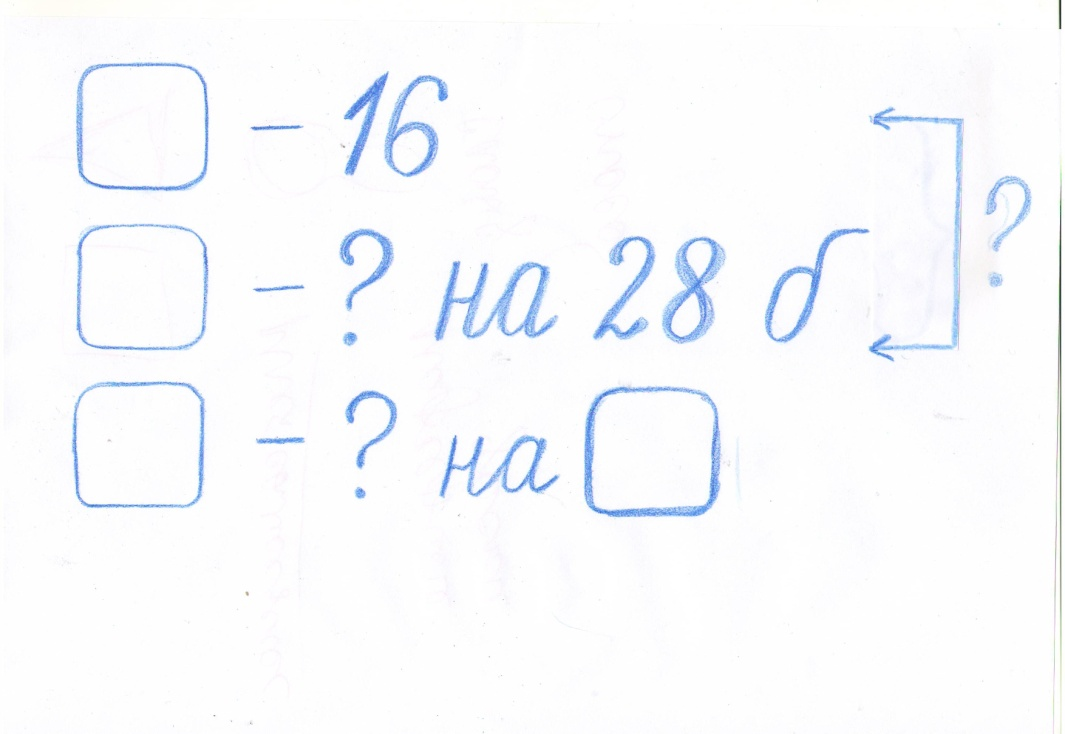 – 16
– ? на 28 б
?
– ? на